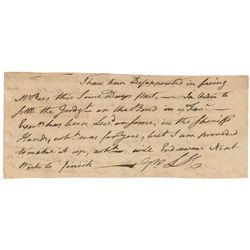 I have been Disappointed in seeing
Mr Rees this Some Days past, - In order to
settle the Judgt. on the Bond in
has been on some, in the Sheriff
Hands, wh. was for you, but I am provided
to make it up, & will Endeavor Next
Week to finish